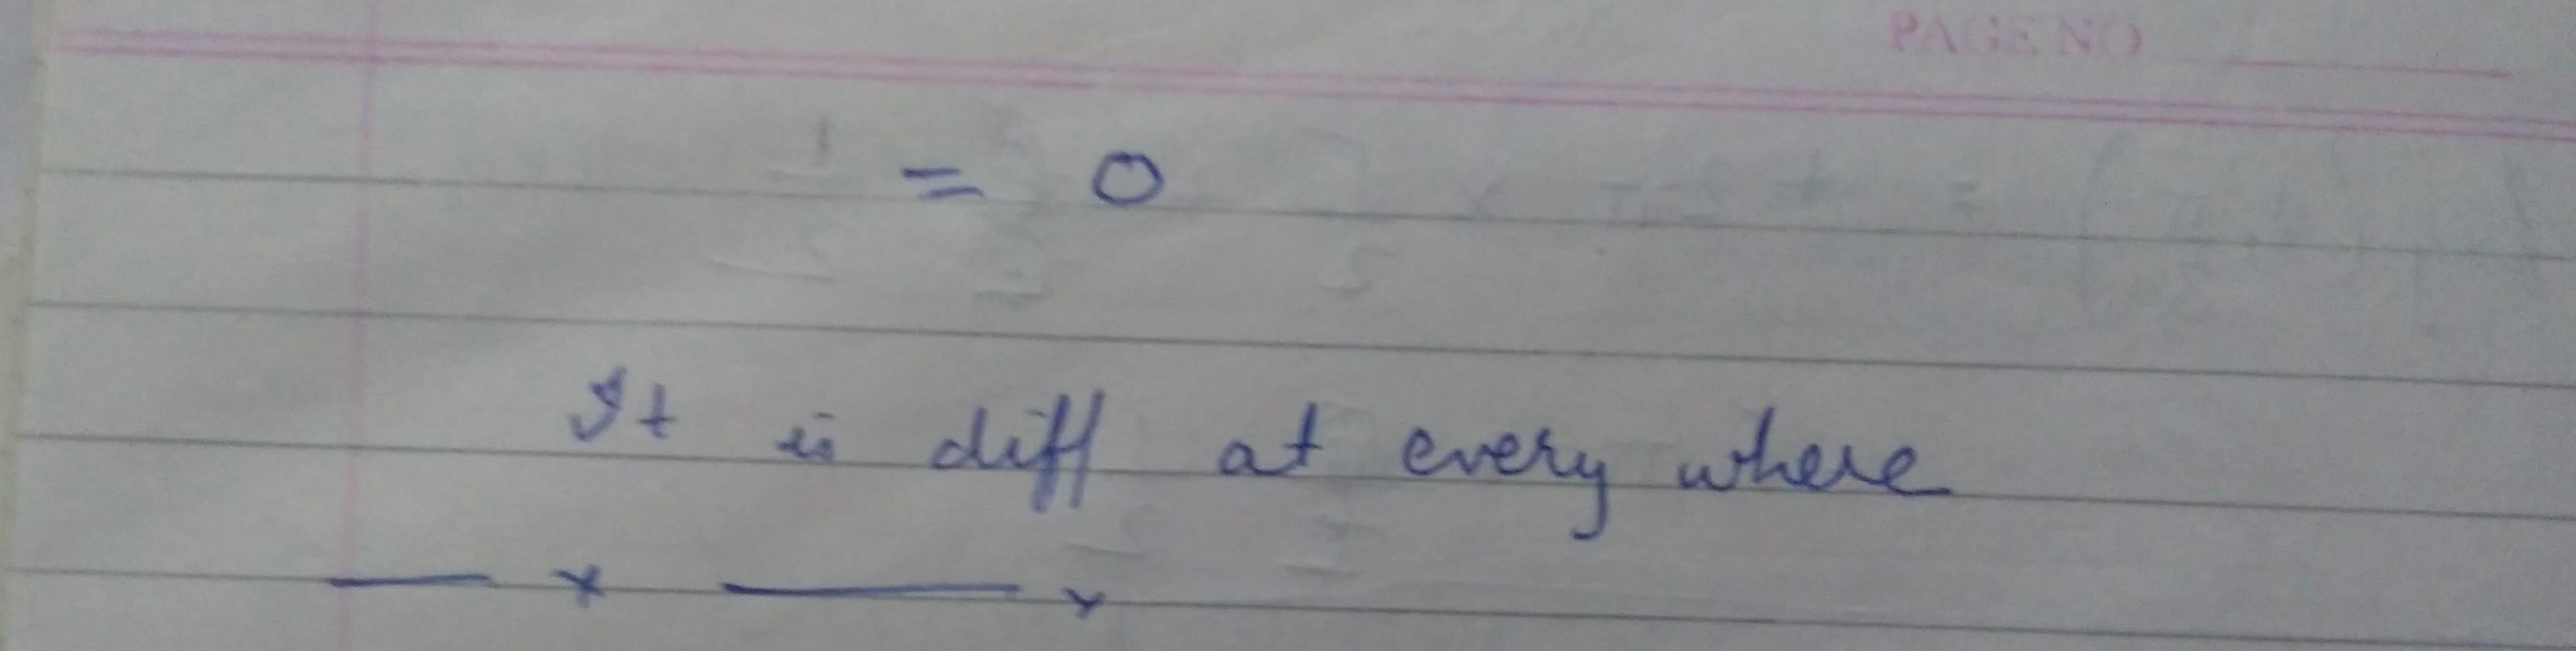 PAGE NO
= 0
It is diff at every where
— x — x